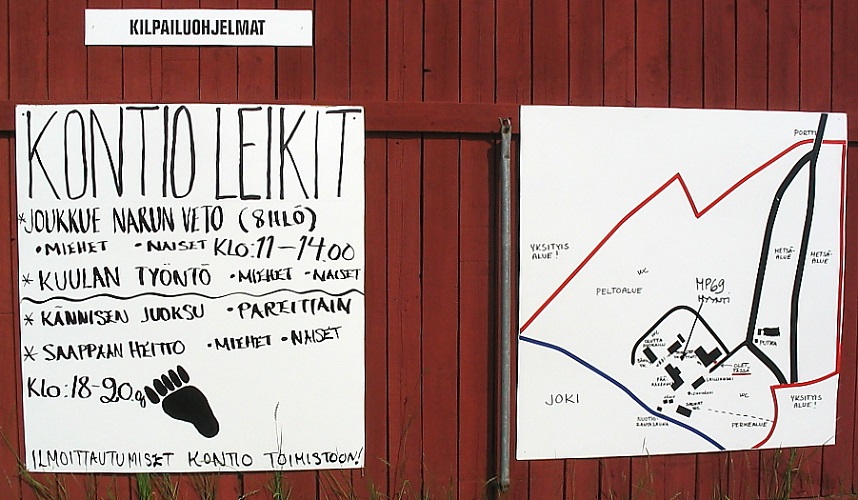 KILPAILUOHJELMAT
KONTIO LEIKIT
* JOUKKUE NARUN VETO (8HLÖ)
• MIEHET • NAISET KLO: 11 - 14.00
* KUULAN TYÖNTÖ • MIEHET • NAISET
* KÄNNISEN JUOKSU • PAREITTAIN
* SAAPPAAN HEITTO • MIEHET • NAISET
KLO: 18-20.
ILMOITTAUTUMISET KONTIO TOIMISTOON!
PORTTI
YKSITYIS
ALUE!
METSÄ-
ALUE
METSÄ-
ALUE
WC
PELTOALUE
MP69
MYYNTI
PUTKA
OLET
TÄSSÄ
WC
YKSITYIS
ALUE!
JOKI
NUOTIO-
RANTA
PERHEALUE